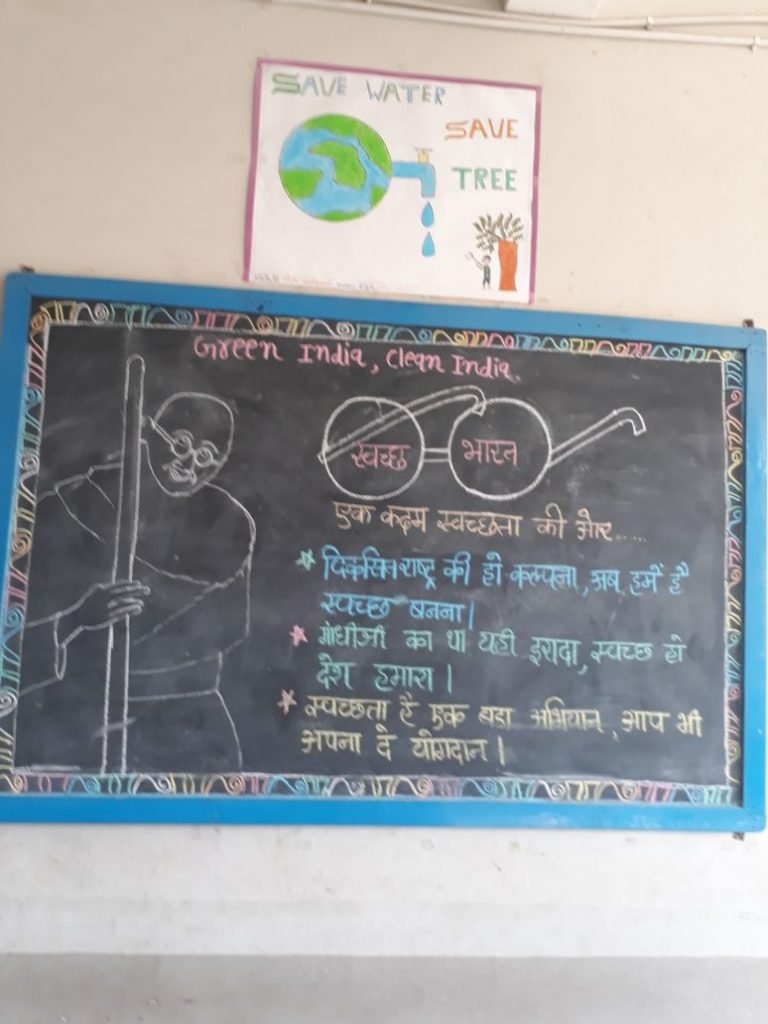 SAVE WATER
SAVE
TREE
Green India, Clean India.
स्वच्छ भारत
एक कदम स्वच्छता की ओर.....
विकसित राष्ट्र की हो कल्पना, अब हमें है
स्वच्छ बनना।
गांधीजी का था यही इरादा, स्वच्छ हो
देश हमारा।
स्वच्छता है एक बडा अभियान, आप भी
अपना दे योगदान।